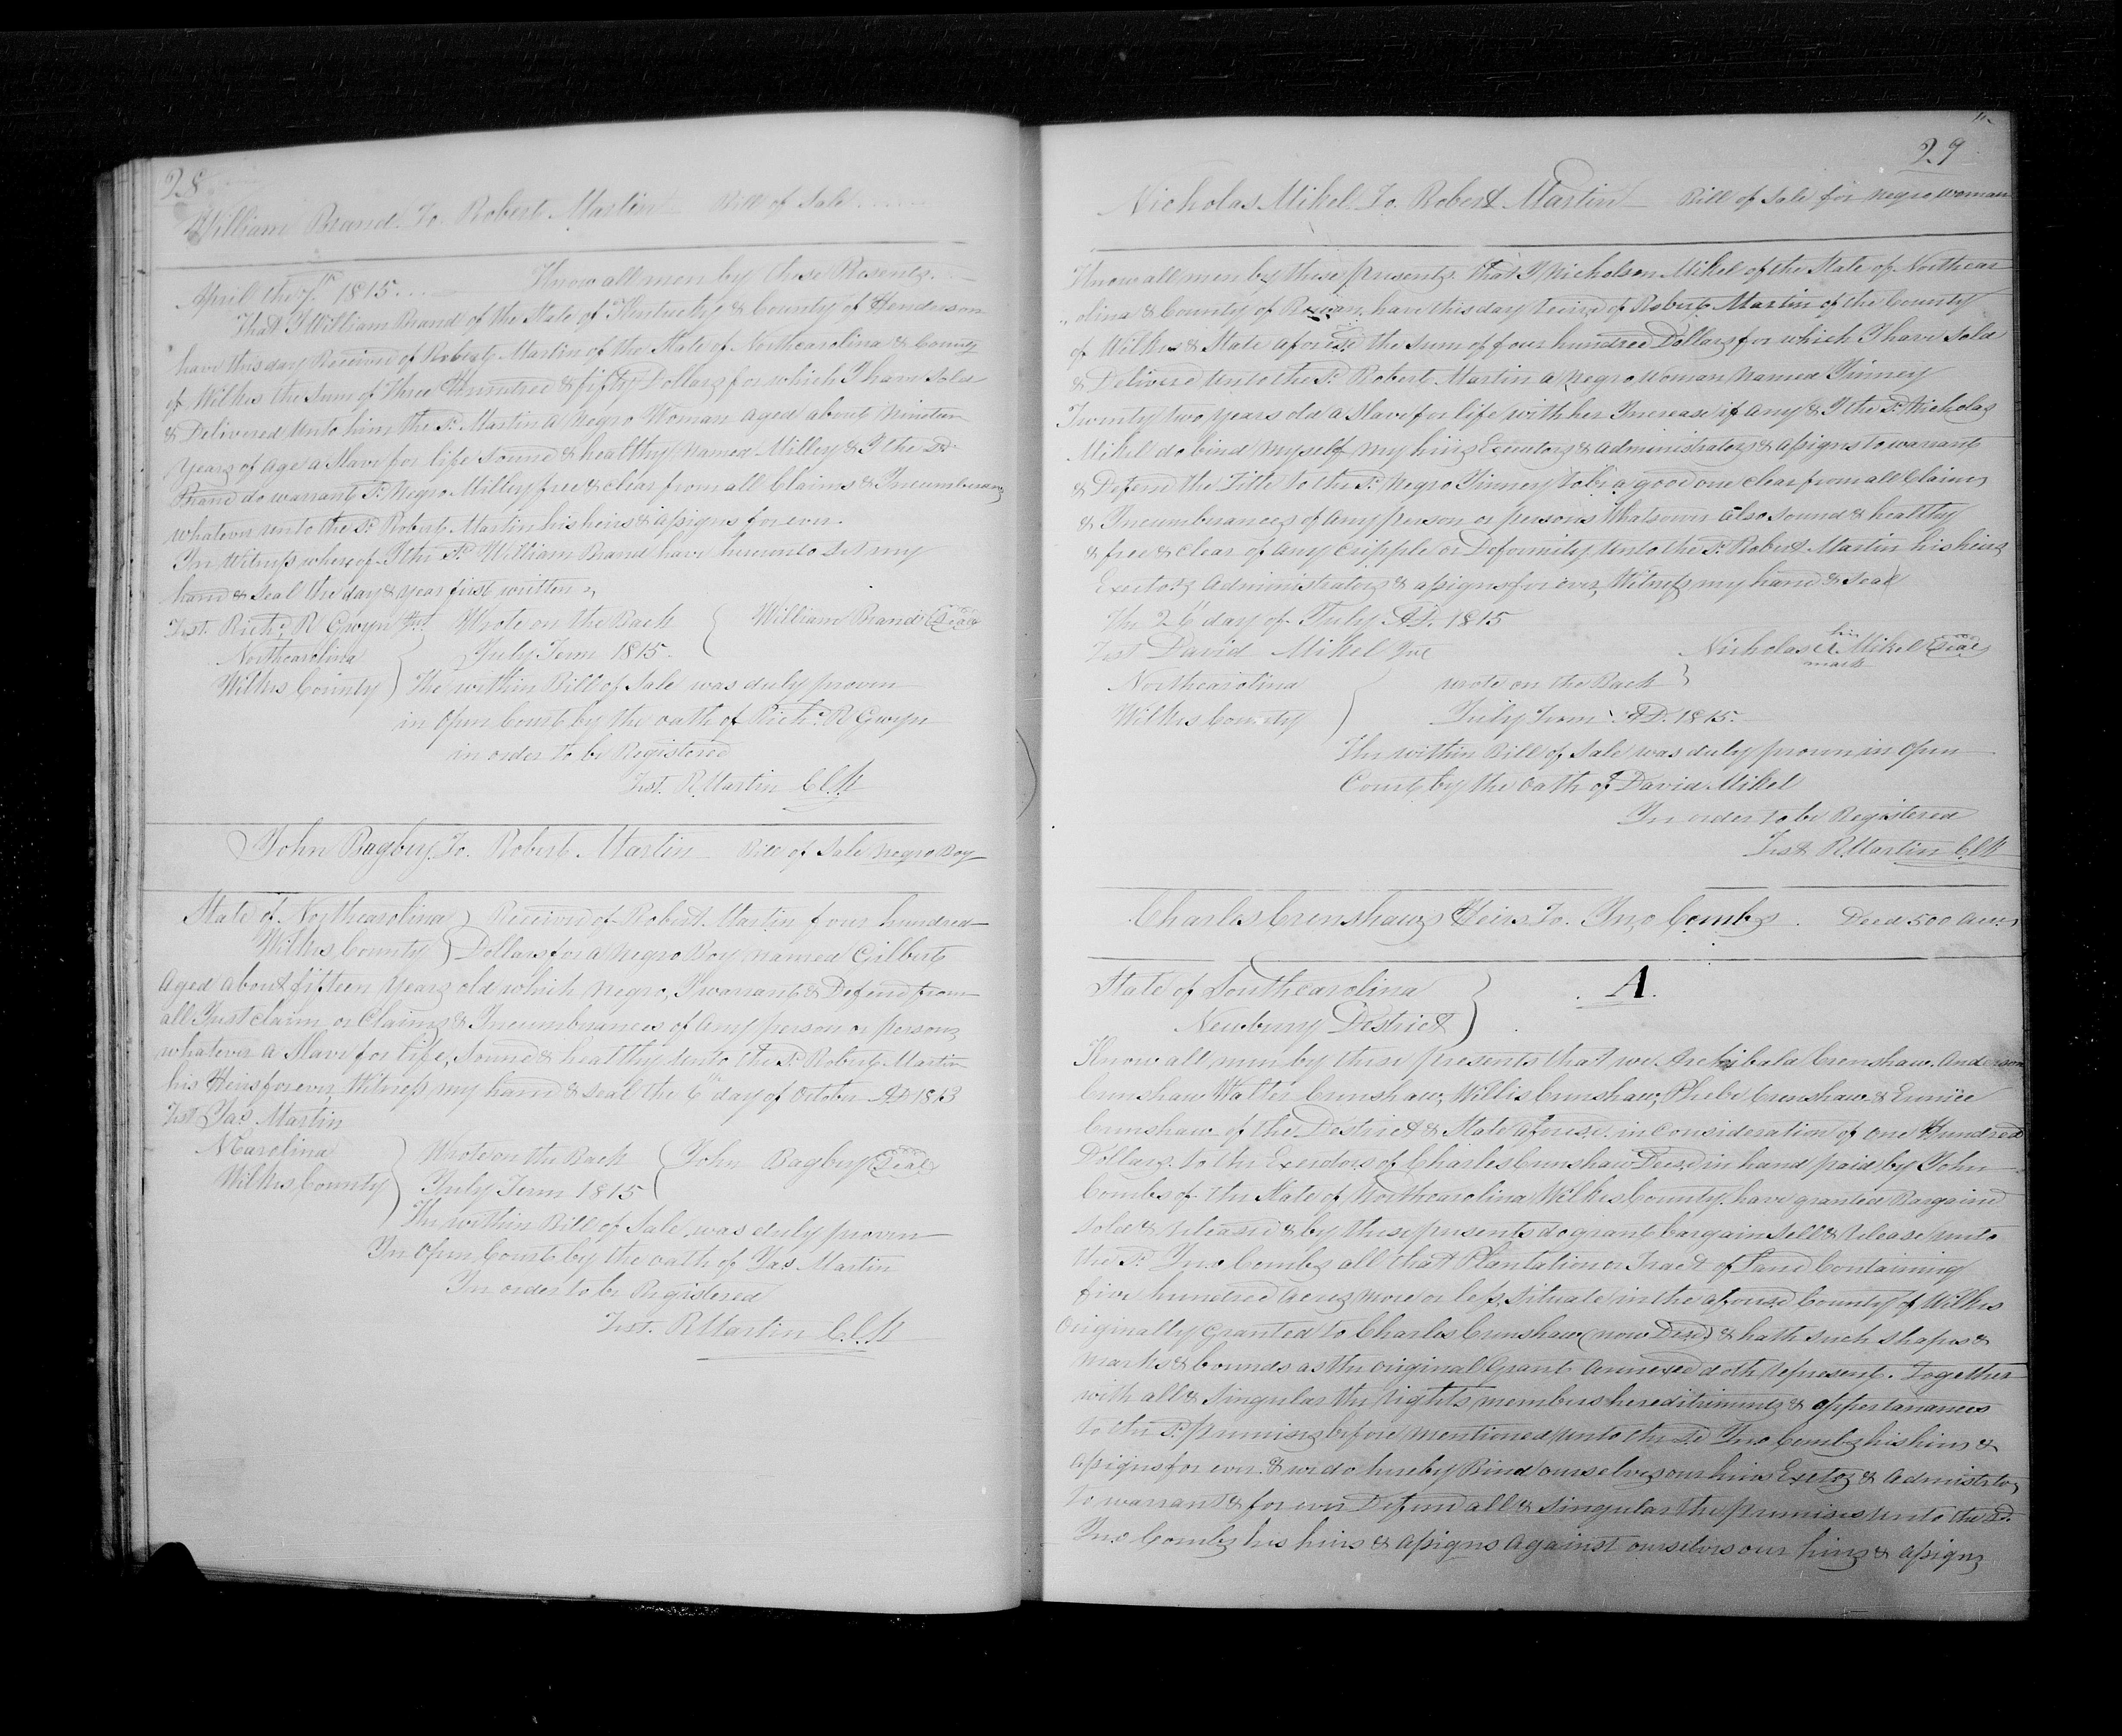 28
William Brand To Robert Martin Bill of Sale
April the 7th 1815 Know all men by these Presents
That I William Brand of the State of Kentucky & County of Henderson
have this day Received of Robert Martin of the State of Northcarolina & County
of Wilkes the Sum of Three Hundred & fifty Dollars for which I have Sold
& Delivered unto him the Sd. Martin a Negro Woman aged about Nineteen
Years of age a Slave for life Sound & healthy named Milley & I the Sd.
Brand do warrant Sd. Negro Milley free & clear from all Claims & Incumberans
whatever unto the Sd. Robert Martin his heirs & assigns forever
In Witness whereof I the Sd. William Brand have hereunto Set my
hand & Seal the day & year first written
Test. Richd. R Gwyn Wrote on the Back William Brand Seal
Northcarolina July Term 1815
Wilkes County The within Bill of Sale was duly proven
in Open Court by the oath of Richd. R Gwyn
in order to be Registered
Test. R Martin C.C.K
John Bagbey To Robert Martin Bill of Sale Negro Boy
State of Northcarolina Received of Robert Martin four hundred
Wilkes County Dollars for a Negro Boy named Gilbert
Aged about fifteen Years old which Negro, I warrant & Defend from
all Just claim or Claims & Incumberances of any person or persons
whatever a Slave for life, Sound & healthy unto the Sd. Robert Martin
his Heirs forever, Witness my hand & Seal the 6th day of October AD 1813
Test Jas. Martin
NCarolina Wrote on the Back John Bagbey Seal
Wilkes County July Term 1815
The within Bill of Sale was duly proven
In Open Court by the oath of Jas. Martin
In order to be Registered
Test. R Martin C.C.K
29
Nicholas Mikel To Robert Martin Bill of Sale for negro woman
Know all men by these presents that I Nicholson Mikel of the State of Northcar
olina & County of Rowan, have this day Receivd of Robert Martin of the County
of Wilkes & State aforesd. the Sum of four hundred Dollars for which I have Sold
& Deliverd unto the Sd. Robert Martin a Negro Woman Named Jinney
Twenty two years old a Slave for life with her Increase if any & I the Sd. Nicholas
Mikel do bind myself my hiirs Executors & Administrators & assigns to warrant
& Defend the Title to the Sd. Negro Jinney to be a good one clear from all Claims
& Incumberances of any person or persons Whatsoever also Sound & healthy
& free & clear of any cripple or Deformity unto the Sd. Robert Martin his heirs
Exectors Administrators & assigns for ever, Witness my hand & Seal
The 26 day of July AD. 1815
Test David Mikel Nicholas his mark Mikel Seal
Northcarolina wrote on the Back
Wilkes County July Term AD. 1815
The within Bill of Sale was duly proven in Open
Court by the oath of David Mikel
In order to be Registered
Test R Martin C.C.K
Charles Crenshaws Heirs To. Jno Combs. Deed 500 Acres
State of Southcarolina A.
Newbury District
Know all men by these presents that we Archibald Crenshaw Anderson
Crenshaw Walter Crenshaw, Willis Crenshaw, Phebe Crenshaw & Eunice
Crenshaw of the District & State aforesd. in Consideration of One Hundred
Dollars to the Exectors of Charles Crenshaw Decsd in hand paid by John
Combs of the State of Northcarolina Wilkes County have granted Bargaind
Sold & Released & by these presents do grant bargain Sell & Release unto
the Sd. Jno Combs all that Plantation or Tract of Land Containing
five hundred acres more or less, Situate in the aforesd County of Wilkes
Originally Granted to Charles Crenshaw (now Decsd) & hath Such Shapes &
marks & bounds as the Original Grant annexed doth represent. Together
with all & Singular the rights members hereditriments & appertanances
to the Sd. premises before mentioned unto the Sd Jno Combs his hiirs &
assigns for ever & we do hereby Bind ourselves our hiirs Exctors & Admistrtos
To warrant & for ever Defend all & Singular the premises unto the Sd.
Jno Combs his hiirs & assigns against ourselves our hiirs & assigns